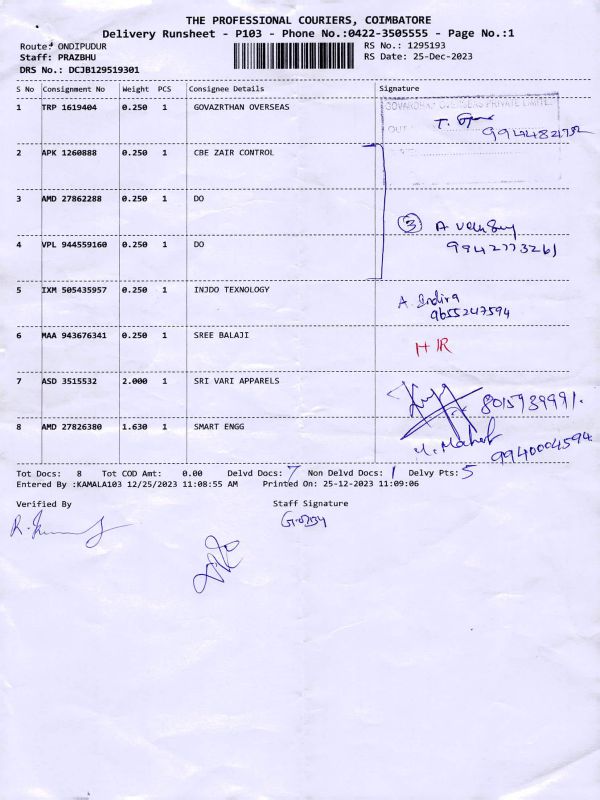 THE PROFESSIONAL COURIERS, COIMBATORE
Delivery Runsheet - P103 - Phone No.:0422-3505555 - Page No.:1
Route: ONDIPUDUR
RS No.: 1295193
Staff: PRAZBHU
RS Date: 25-Dec-2023
DRS No.: DCJB129519301
S No Consignment No Weight PCS Consignee Details Signature
1 TRP 1619404 0.250 1 GOVAZRTHAN OVERSEAS
OUT
2 APK 1260888 0.250 1 CBE ZAIR CONTROL
3 AMD 27862288 0.250 1 DO
3 A
9942773261
4 VPL 944559160 0.250 1 DO
5 IXM 505435957 0.250 1 INJDO TEXNOLOGY
A. Indira
9655247594
6 MAA 943676341 0.250 1 SREE BALAJI
7 ASD 3515532 2.000 1 SRI VARI APPARELS
8015939991.
8 AMD 27826380 1.630 1 SMART ENGG
9940004594
Tot Docs: 8 Tot COD Amt: 0.00 Delvd Docs: 7 Non Delvd Docs: 1 Delvy Pts: 5
Entered By :KAMALA103 12/25/2023 11:08:55 AM Printed On: 25-12-2023 11:09:06
Verified By Staff Signature